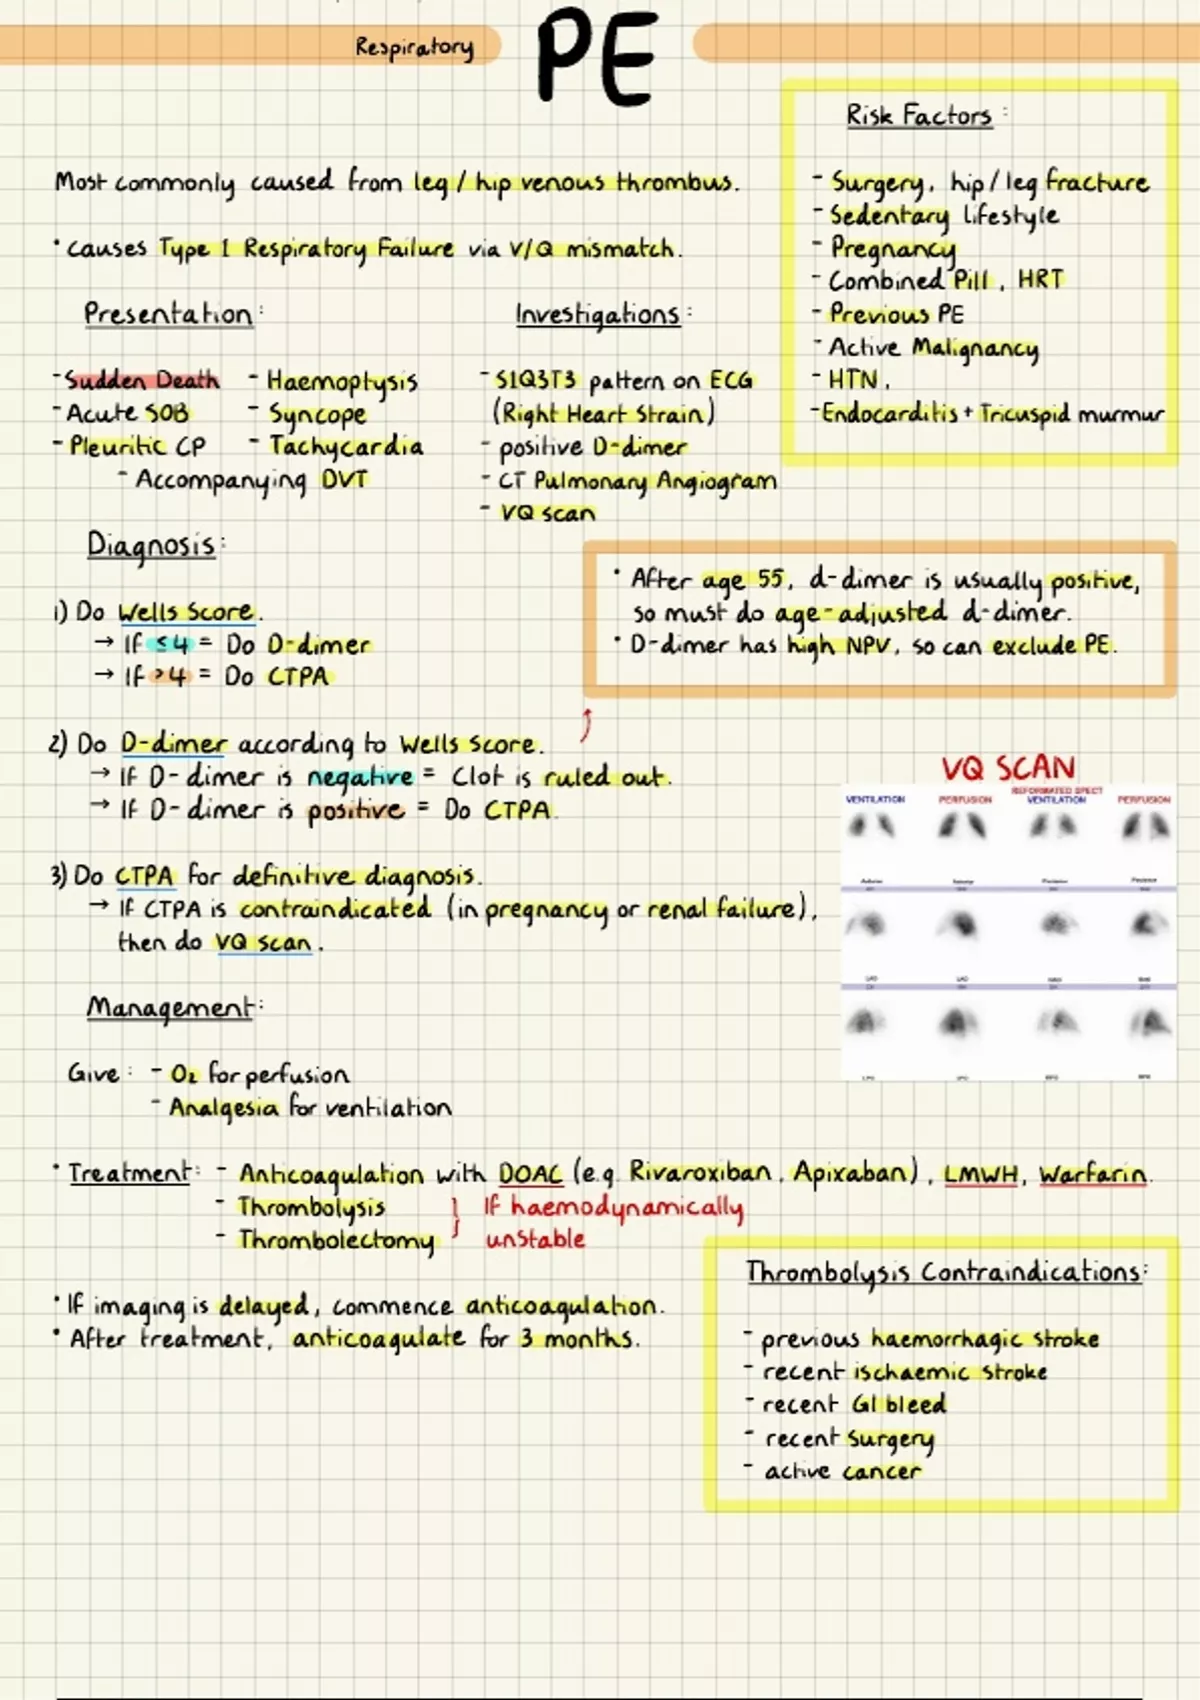 Respiratory
PE
Risk Factors :
- Surgery, hip / leg fracture
- Sedentary lifestyle
- Pregnancy
- Combined Pill, HRT
- Previous PE
- Active Malignancy
- HTN.
- Endocarditis + Tricuspid murmur
Most commonly caused from leg / hip venous thrombus.
• causes Type 1 Respiratory Failure via V/Q mismatch.
Presentation:
- Sudden Death
- Acute SOB
- Pleuritic CP
- Haemoptysis
- Syncope
- Tachycardia
- Accompanying DVT
Investigations:
- S1Q3T3 pattern on ECG
(Right Heart Strain)
- positive D-dimer
- CT Pulmonary Angiogram
- VQ scan
Diagnosis:
1) Do Wells Score.
→ If ≤4 = Do D-dimer
→ If >4 = Do CTPA
• After age 55, d-dimer is usually positive,
so must do age-adjusted d-dimer.
• D-dimer has high NPV, so can exclude PE.
2) Do D-dimer according to Wells Score.
→ If D-dimer is negative = Clot is ruled out.
→ If D-dimer is positive = Do CTPA.
3) Do CTPA for definitive diagnosis.
→ If CTPA is contraindicated (in pregnancy or renal failure),
then do VQ scan.
VQ SCAN
REFORMATED SPECT
VENTILATION PERFUSION VENTILATION PERFUSION
Anterior Anterior Posterior Posterior
Management:
Give: - O₂ for perfusion
- Analgesia for ventilation
• Treatment: - Anticoagulation with DOAC (e.g. Rivaroxiban, Apixaban), LMWH, Warfarin.
- Thrombolysis
- Thrombolectomy
} If haemodynamically
unstable
• If imaging is delayed, commence anticoagulation.
• After treatment, anticoagulate for 3 months.
Thrombolysis Contraindications:
- previous haemorrhagic stroke
- recent ischaemic stroke
- recent GI bleed
- recent Surgery
- active cancer